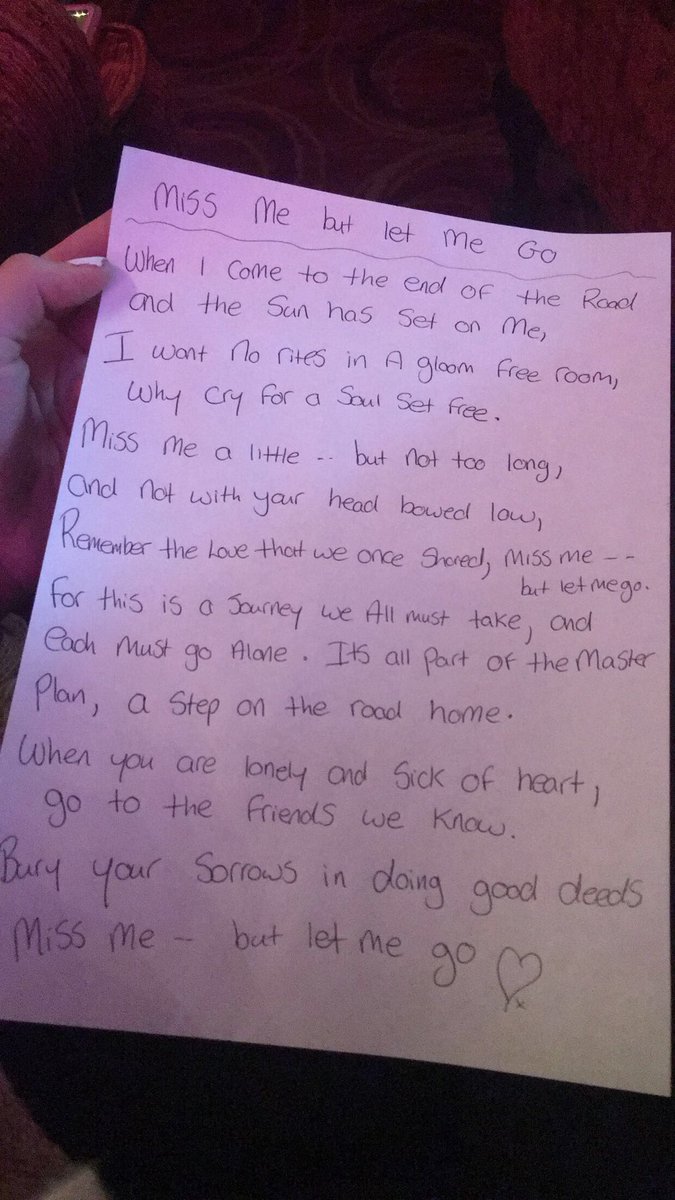 Miss Me but let Me Go
When I Come to the end of the Road
and the Sun has Set on Me,
I want no rites in A gloom free room,
Why Cry for a Soul Set free.
Miss Me a little -- but not too long,
and not with your head bowed low,
Remember the Love that we once Shared, Miss me --
but let me go.
for this is a Journey we All must take, and
each Must go Alone. Its all part of the Master
Plan, a Step on the road home.
When you are lonely and Sick of heart,
go to the friends we Know.
Bury your Sorrows in doing good deeds
Miss Me - but let me go ♡
x